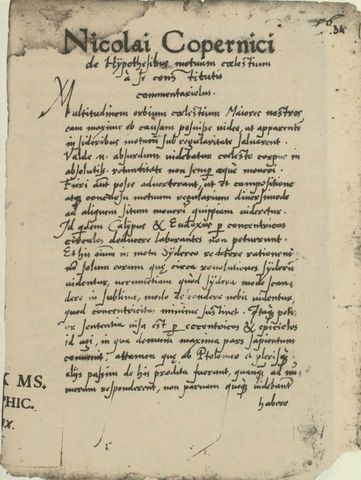 34
Nicolai Copernici
de Hypothesibus motuum cœlestium
à se constitutis
commentariolus.
Multitudinem orbium cœlestium Maiores nostros
eam maxime ob causam posuisse video, ut apparentem
in sideribus motum sub regularitate salvarent.
Valde n. absurdum videbatur cœleste corpus in
absolutiss. rotunditate non semp. æque moveri.
Fieri aut posse adverterant, ut et compositione
atq concursu motuum regularium diversimode
ad aliquem situm moveri quippiam videretur.
Id quidem Calippus & Eudoxus p concentricos
circulos deducere laborantes non potuerunt.
Et his omnium in motu sydereo reddere rationem
nō solum eorum quę circa revolutiones syderū
videntur, verumetiam quod sydera modo scan-
dere in sublime, modo descendere nobis videntur,
quod concentricitas minime sustinet. Itaq poti-
or sententia visa est p eccentricos & epiciclos
id agi, in qua demum maxima pars sapientum
convenit. attamen quę ab Ptolemeo et plerisq
alijs passim de his prodita fuerunt, quamquā ad nu-
merum responderent, non parvam quoq videbant
habere
X MS.
PHIC.
OX.